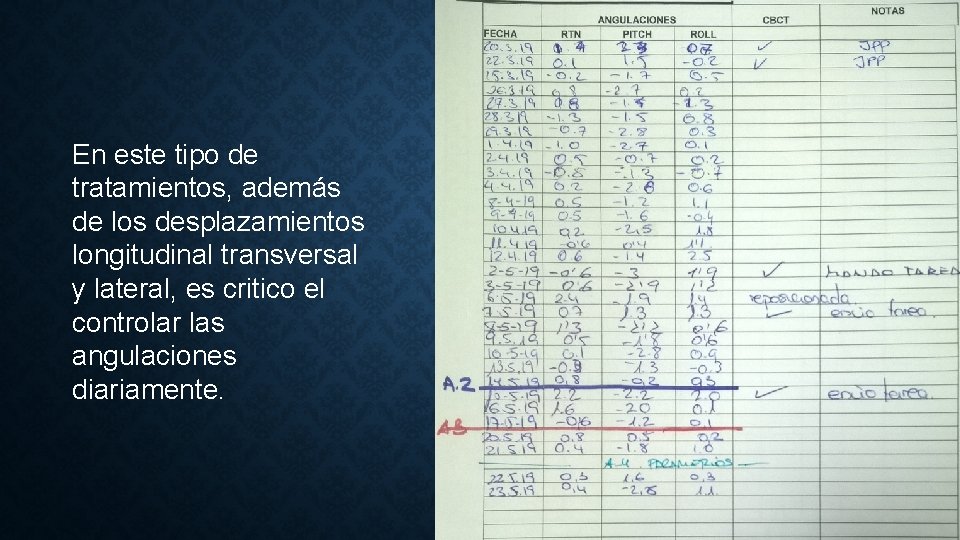 En este tipo de
tratamientos, además
de los desplazamientos
longitudinal transversal
y lateral, es critico el
controlar las
angulaciones
diariamente.
ANGULACIONES CBCT NOTAS
FECHA RTN PITCH ROLL
20.3.19 0.7 ✓ JPP
22.3.19 0.1 1.5 -0.2 ✓ JPP
25.3.19 -0.2 -1.7 0.5
26.3.19 0.8 -2.7 0.2
27.3.19 0.8 -1.3
28.3.19 -1.3 -1.5 0.8
29.3.19 -0.7 -2.8 0.3
1.4.19 -1.0 -2.7 0.1
2.4.19 0.5 -0.7 0.2
3.4.19 -0.8 -1.3 -0.7
4.4.19 0.2 -2.8 0.6
8-4-19 0.5 -1.2 1.1
9-4-19 0.5 -1.6 -0.4
10.4.19 0.2 -2,5 1.8
11.4.19 -0'6 0'4 1'1
12.4.19 0.6 -1.4 2.5
2-5-19 -0'6 -3 1'9 ✓ MANDO TAREA
3-5-19 0'6 -2'9 1'2
6.5.19 2.4 -1.9 1.4 reposicionada
7.5.19 0.7 1.3 1.3 ✓ envio tarea.
8-5-19 1'3 -2'2 0'6
9.5.19 0'5 -1'8 0'6
10-5-19 0.1 -2.8 0.9
13.5.19 -0.3 -1.3 -0.3
A.2 14.5.19 0,8 -0,2
2.2 -2.2 2.0 ✓ envio tarea.
16.5.19 1.6 -2.0 0.1
A3 17-5-19 -0.6 -1.2 0.1
20.5.19 0.8 0.5 0.2
21.5.19 0.4 -1.8 1.0
A.4
22.5.19 0.3 1.6 0.3
23.5.19 0,4 1.1